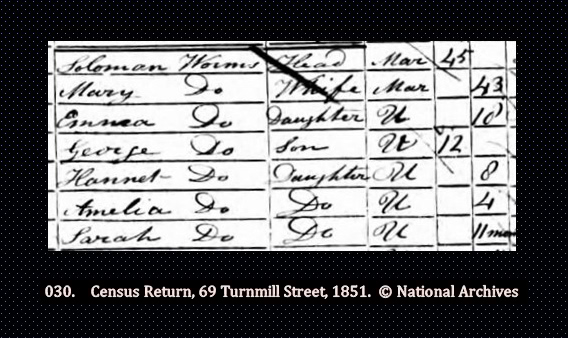 Soloman Worms Head Mar 45
Mary Do Whife Mar 43
Emma Do Daughter U 10
George Do Son U 12
Hannet Do Daughter U 8
Amelia Do Do U 4
Sarah Do Do U 11 mon
030. Census Return, 69 Turnmill Street, 1851. © National Archives